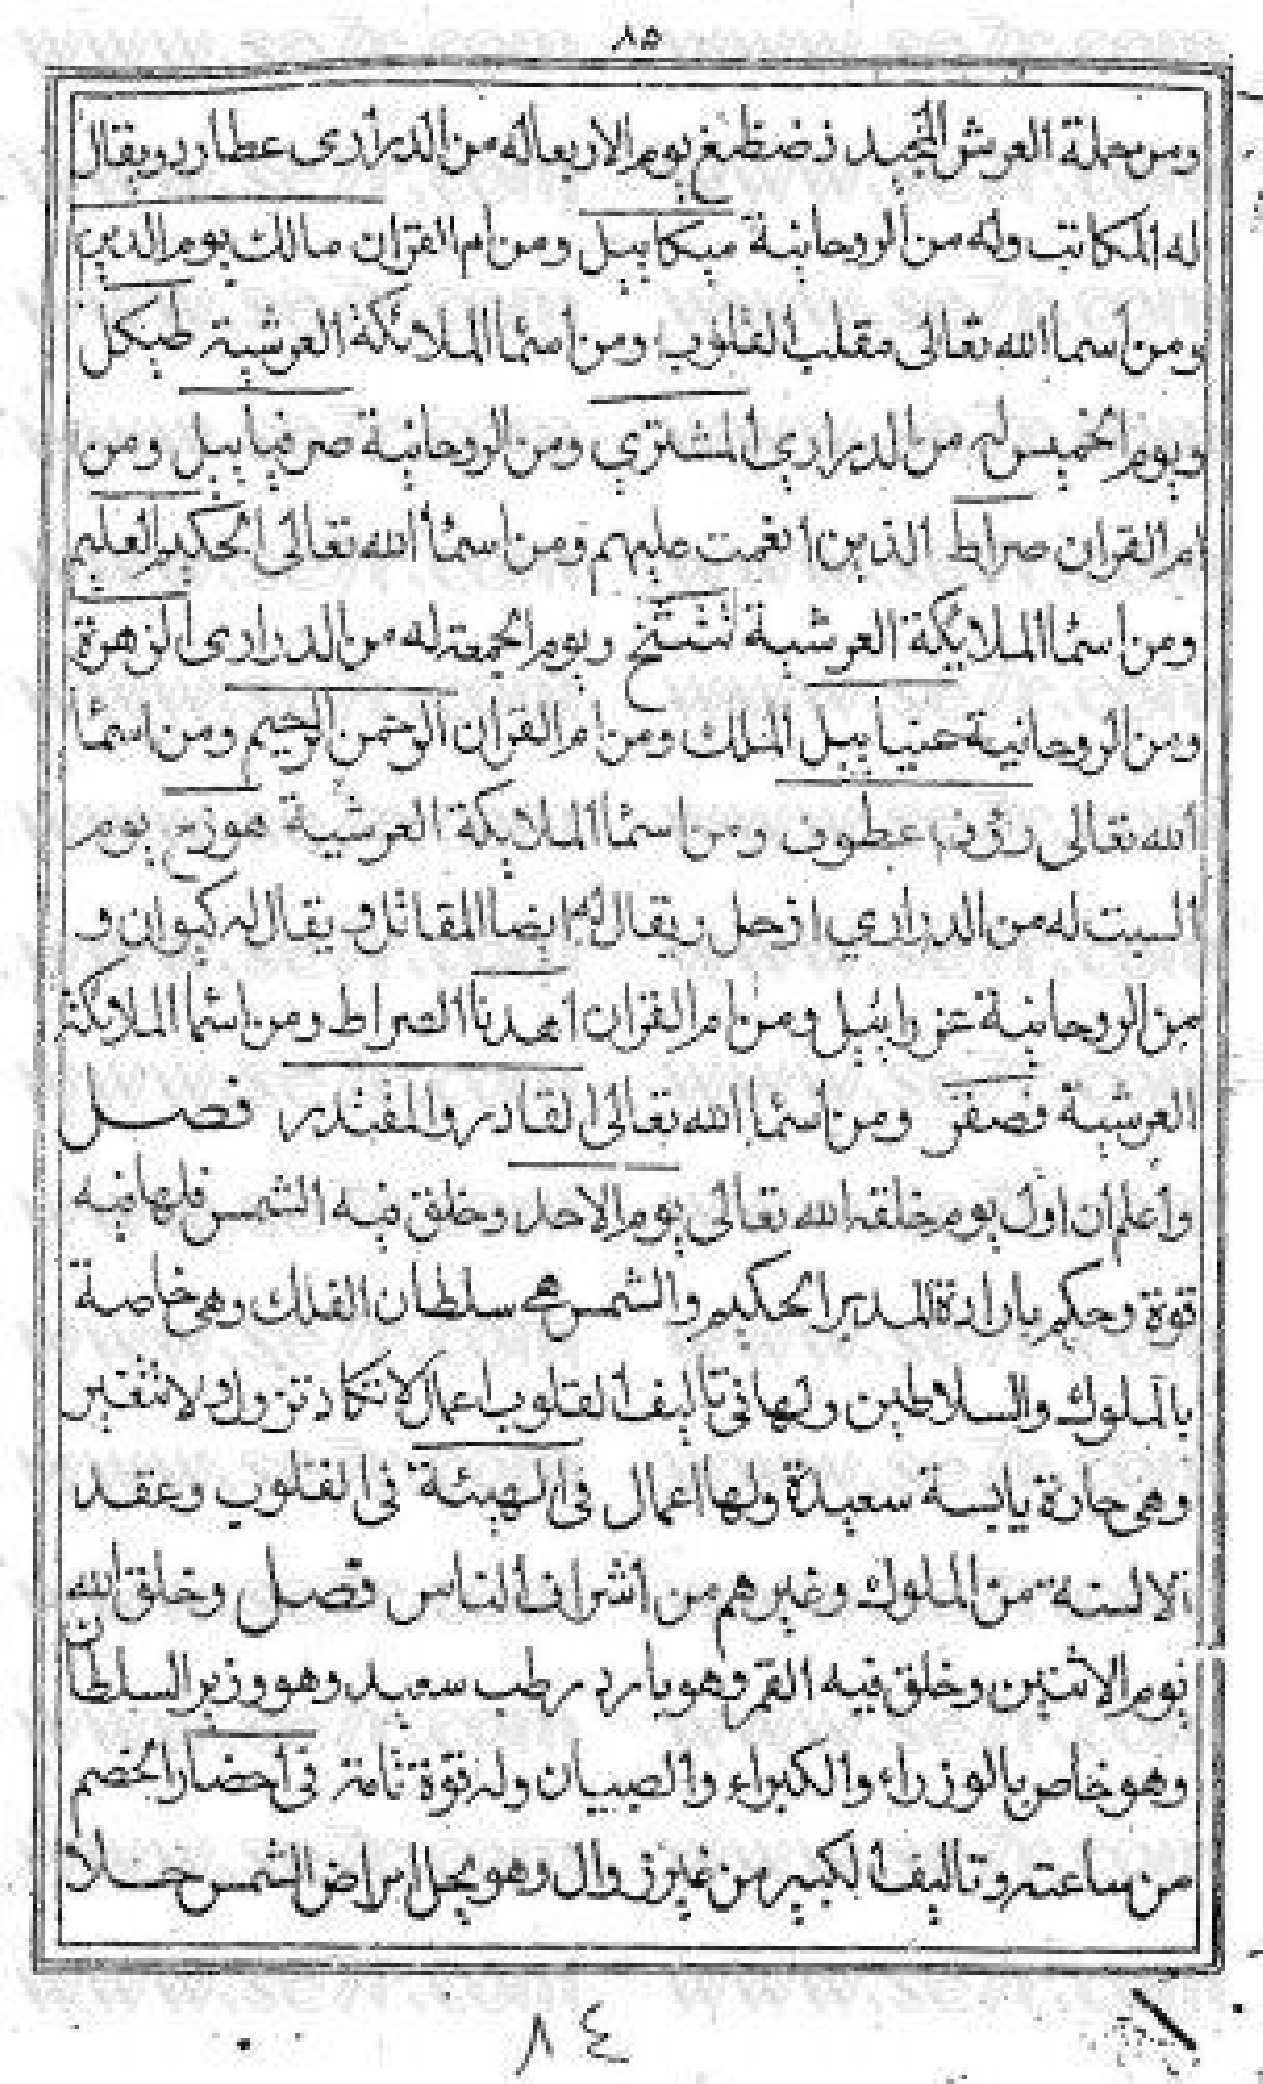 ٨٥
ومن حملة العرش المجيد ذضظغ يوم الاربعاله من الدرارى عطارد ويقال
له المكاتب وله من الروحانية ميكاييل ومن ام القران مالك يوم الدين
ومن اسما الله تعالى مقلب القلوب ومن اسما الملائكة العرشية طيكل
ويوم الخميس له من الدراري المشتري ومن الروحانية صرفياييل ومن
ام القران صراط الذين انعمت عليهم ومن اسما الله تعالى الحكيم العليم
ومن اسما الملايكة العرشية ويوم الجمعة له من الدرارى الزهرة
ومن الروحانية عنياييل الملك ومن ام القران الرحمن الرحيم ومن اسما
الله تعالى رؤف عطوف ومن اسما الملايكة العرشية هوزح يوم
السبت له من الدراري ازحل ويقال له ايضا المقاتل ويقال له كيوان و
من الروحانية عزراييل ومن ام القران اهدنا الصراط ومن اسما الملايكة
العرشية فصقر ومن اسما الله تعالى القادر والمقتدر فصل
واعلم ان اول يوم خلقه الله تعالى يوم الاحد وخلق فيه الشمس فلها فيه
قوة وحكم بارادة المدبر الحكيم والشمس هى سلطان الفلك وهى خاصة
بالملوك والسلاطين ولها فى تاليف القلوب اعمال لا تكاد تزول ولا تتغير
وهى حارة يابسة سعيدة ولها اعمال فى الهيئة فى القلوب وعقد
الالسنة من الملوك وغيرهم من اشراف الناس فصل وخلق الله
يوم الاثنين وخلق فيه القمر وهو بارد رطب سعيد وهو وزير السلطان
وهو خاص بالوزراء والكبراء والصبيان وله قوة تامة فى احضار الخصم
من ساعته وتاليف الكبير من غير زوال وهو يحل امراض الشمس خلا
٨٤